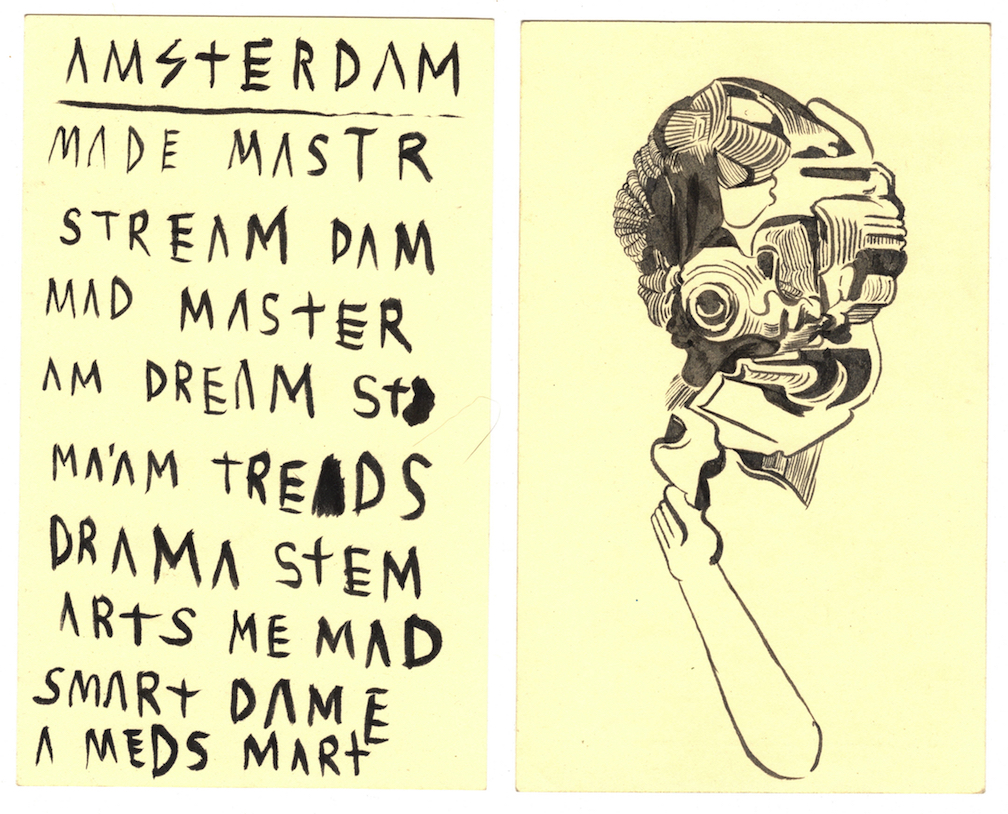 AMSTERDAM
MADE MASTR
STREAM DAM
MAD MASTER
AM DREAM ST
MA'AM TREADS
DRAMA STEM
ARTS ME MAD
SMART DAME
A MEDS MART